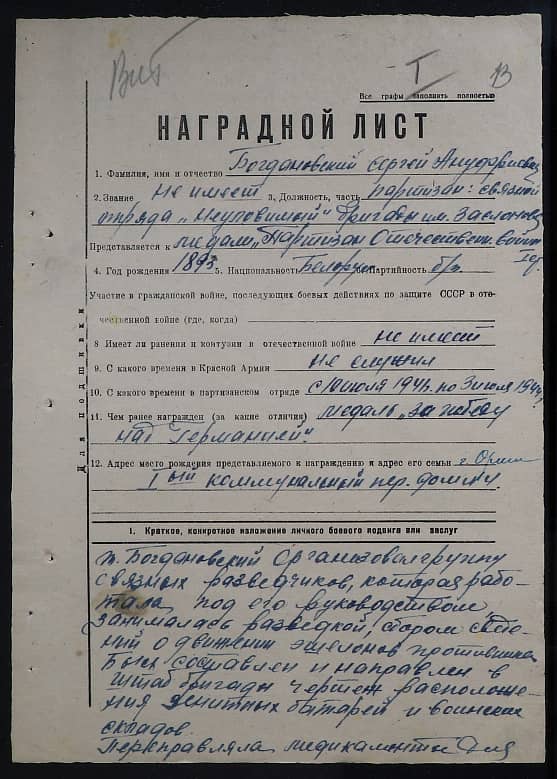 Вит
I
13
Все графы заполнить полностью
НАГРАДНОЙ ЛИСТ
1. Фамилия, имя и отчество Богдановский Сергей
2. Звание не имеет 3. Должность, часть партизан: связной
отряда „Неуловимый" бригады им. Заслонова
Представляется к медали „Партизан Отечествен. войны
4. Год рождения 1893 5. Национальность Белорус Партийность б/п
Участие в гражданской войне, последующих боевых действиях по защите СССР в оте-
чественной войне (где, когда)
8 Имеет ли ранения и контузии в отечественной войне не имеет
9. С какого времени в Красной Армии не служил
10. С какого времени в партизанском отряде с июля по июля 1944
11. Чем ранее награжден (за какие отличия) медаль „за победу
над Германией".
12. Адрес место рождения представляемого к награждению и адрес его семьи г.
1ый коммунальный пер. дом
Для подшивки
1. Краткое, конкретное изложение личного боевого подвига или заслуг
т. Богдановский организовал группу
связных разведчиков, которая рабо-
тала под его руководством,
занималась разведкой, сбором сведе-
ний о движении эшелонов противника
Был составлен и направлен в
штаб бригады чертеж расположе-
ния зенитных батарей и воинских
складов.
Переправляла медикаменты для